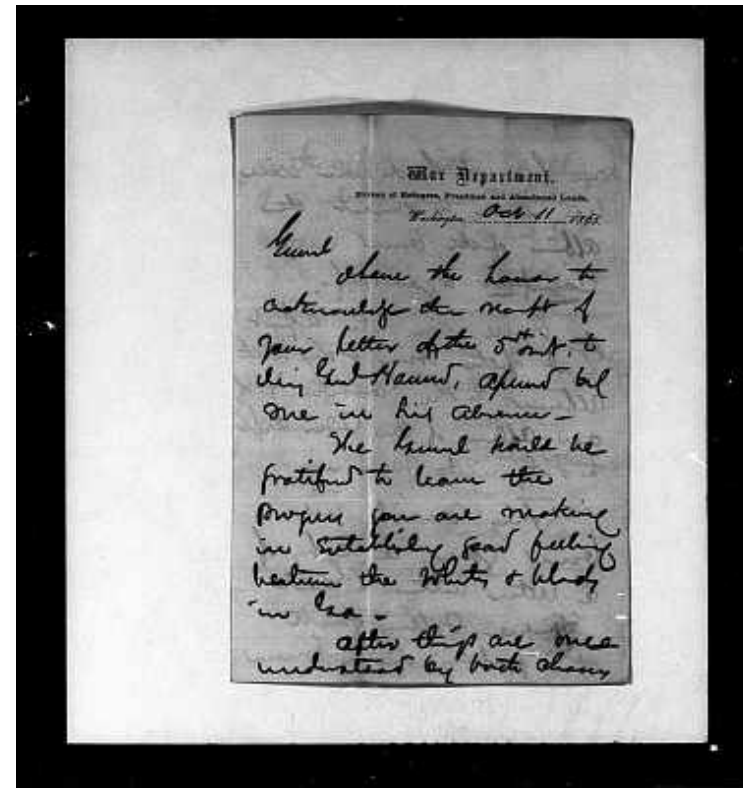 War Department,
Bureau of Refugees, Freedmen and Abandoned Lands,
Washington Oct 11 1865
Genl
I have the honor to
acknowledge the receipt of
your letter of the 5th inst. to
Genl Howard, opened by
me in his absence -
The Genl would be
gratified to learn the
progress you are making
in establishing good feeling
between the whites & blacks
in Ga -
After things are once
understood by both classes